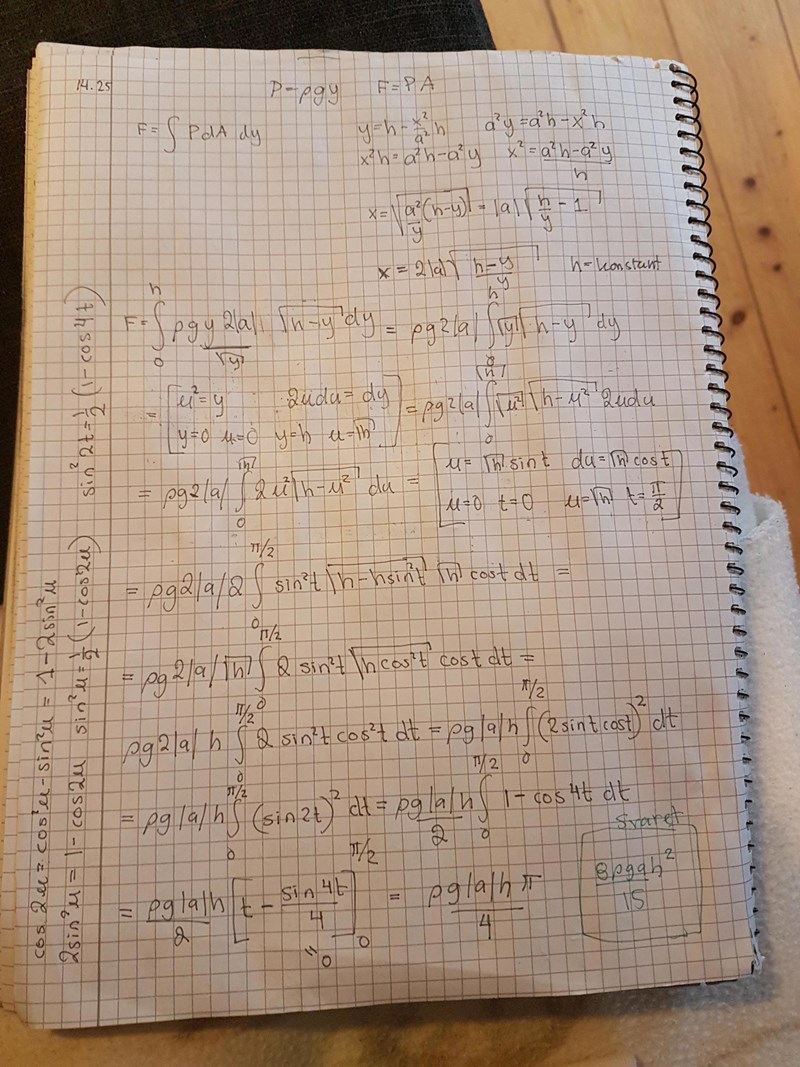 14.25 P=ρgy F=PA
F=∫ P dA dy y=h-x²/a² h a²y=a²h-x²h
x²h=a²h-a²y x²=(a²h-a²y)/h
x=√(a²/y (h-y)) = |a|√(h/y - 1)
x=2|a|√((h-y)/y) h=konstant
F=∫₀ʰ ρg y 2|a|/√y · √(h-y) dy = ρg2|a| ∫₀ʰ √y √(h-y) dy
= [u²=y 2udu=dy
y=0 u=0 y=h u=√h] = ρg2|a| ∫₀^√h √u² √(h-u²) 2udu
= ρg2|a| ∫₀^√h 2u²√(h-u²) du = [u=√h sint du=√h cost
u=0 t=0 u=√h t=π/2]
= ρg2|a|2 ∫₀^π/2 sin²t √(h-hsin²t) √h cost dt =
= ρg2|a|√h ∫₀^π/2 2 sin²t √(h cos²t) cost dt =
ρg2|a|h ∫₀^π/2 2 sin²t cos²t dt = ρg|a|h ∫₀^π/2 (2sintcost)² dt
= ρg|a|h ∫₀^π/2 (sin2t)² dt = ρg|a|h/2 ∫₀^π/2 1-cos4t dt
= ρg|a|h/2 [t - sin4t/4]₀^π/2 = ρg|a|h π/4
"0
Svaret
8ρgah²/15
cos2u=cos²u-sin²u = 1-2sin²u
2sin²u = 1-cos2u sin²u=½(1-cos2u) sin²2t=½(1-cos4t)